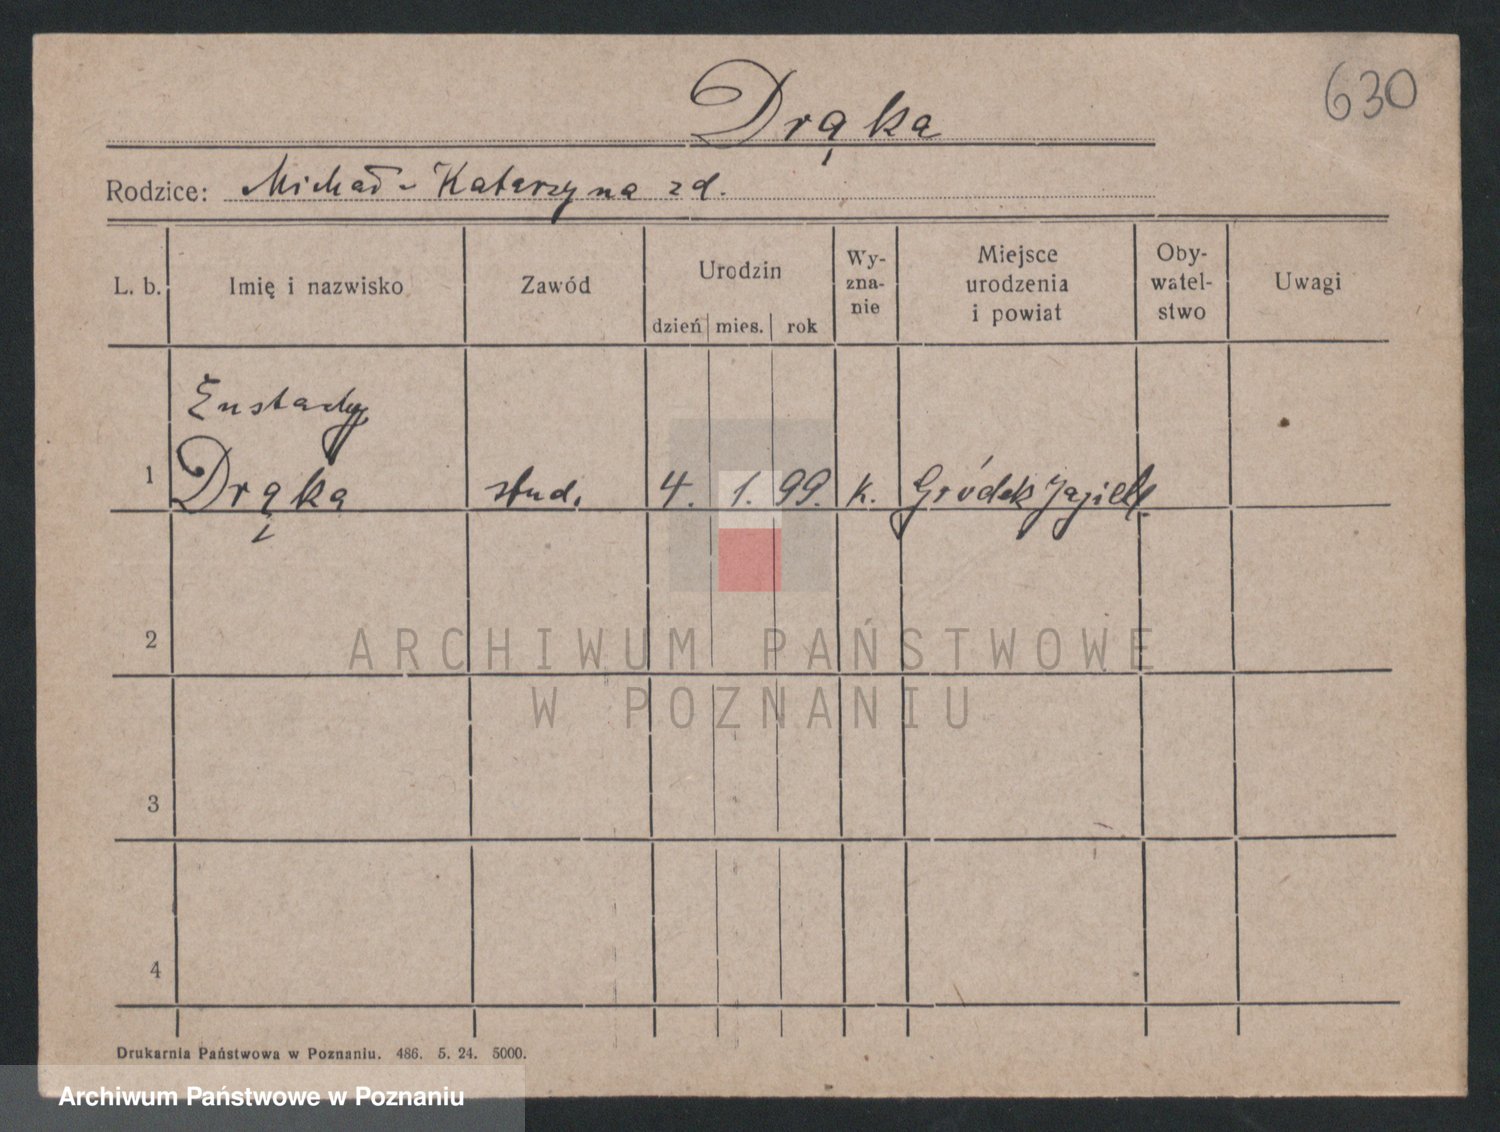 630
Drąka
Rodzice: Michał - Katarzyna zd.
L. b. Imię i nazwisko Zawód Urodzin dzień mies. rok Wy-zna-nie Miejsce urodzenia i powiat Oby-watel-stwo Uwagi
Eustachy
1 Drąka stud. 4. 1. 99. k. Gródek Jagiell.
2
3
4
ARCHIWUM PAŃSTWOWE
W POZNANIU
Drukarnia Państwowa w Poznaniu. 486. 5. 24. 5000.
Archiwum Państwowe w Poznaniu